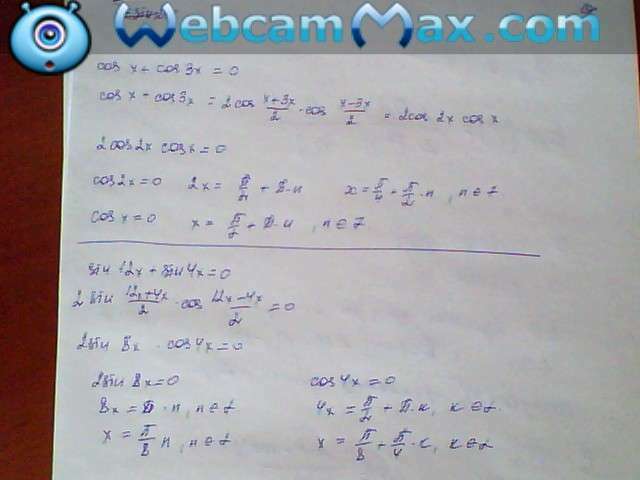 WebcamMax.com
cos x + cos 3x = 0
cos x + cos 3x = 2cos (x+3x)/2 · cos (x-3x)/2 = 2cos 2x cos x
2cos2x cosx = 0
cos2x = 0 2x = π/2 + π·n x = π/4 + π/2·n, n∈Z
cos x = 0 x = π/2 + π·n, n∈Z
sin 12x + sin 4x = 0
2 sin (12x+4x)/2 · cos (12x-4x)/2 = 0
2sin 8x · cos4x = 0
2sin 8x = 0 cos4x = 0
8x = π·n, n∈Z 4x = π/2 + π·k, k∈Z
x = π/8 n, n∈Z x = π/8 + π/4·k, k∈Z